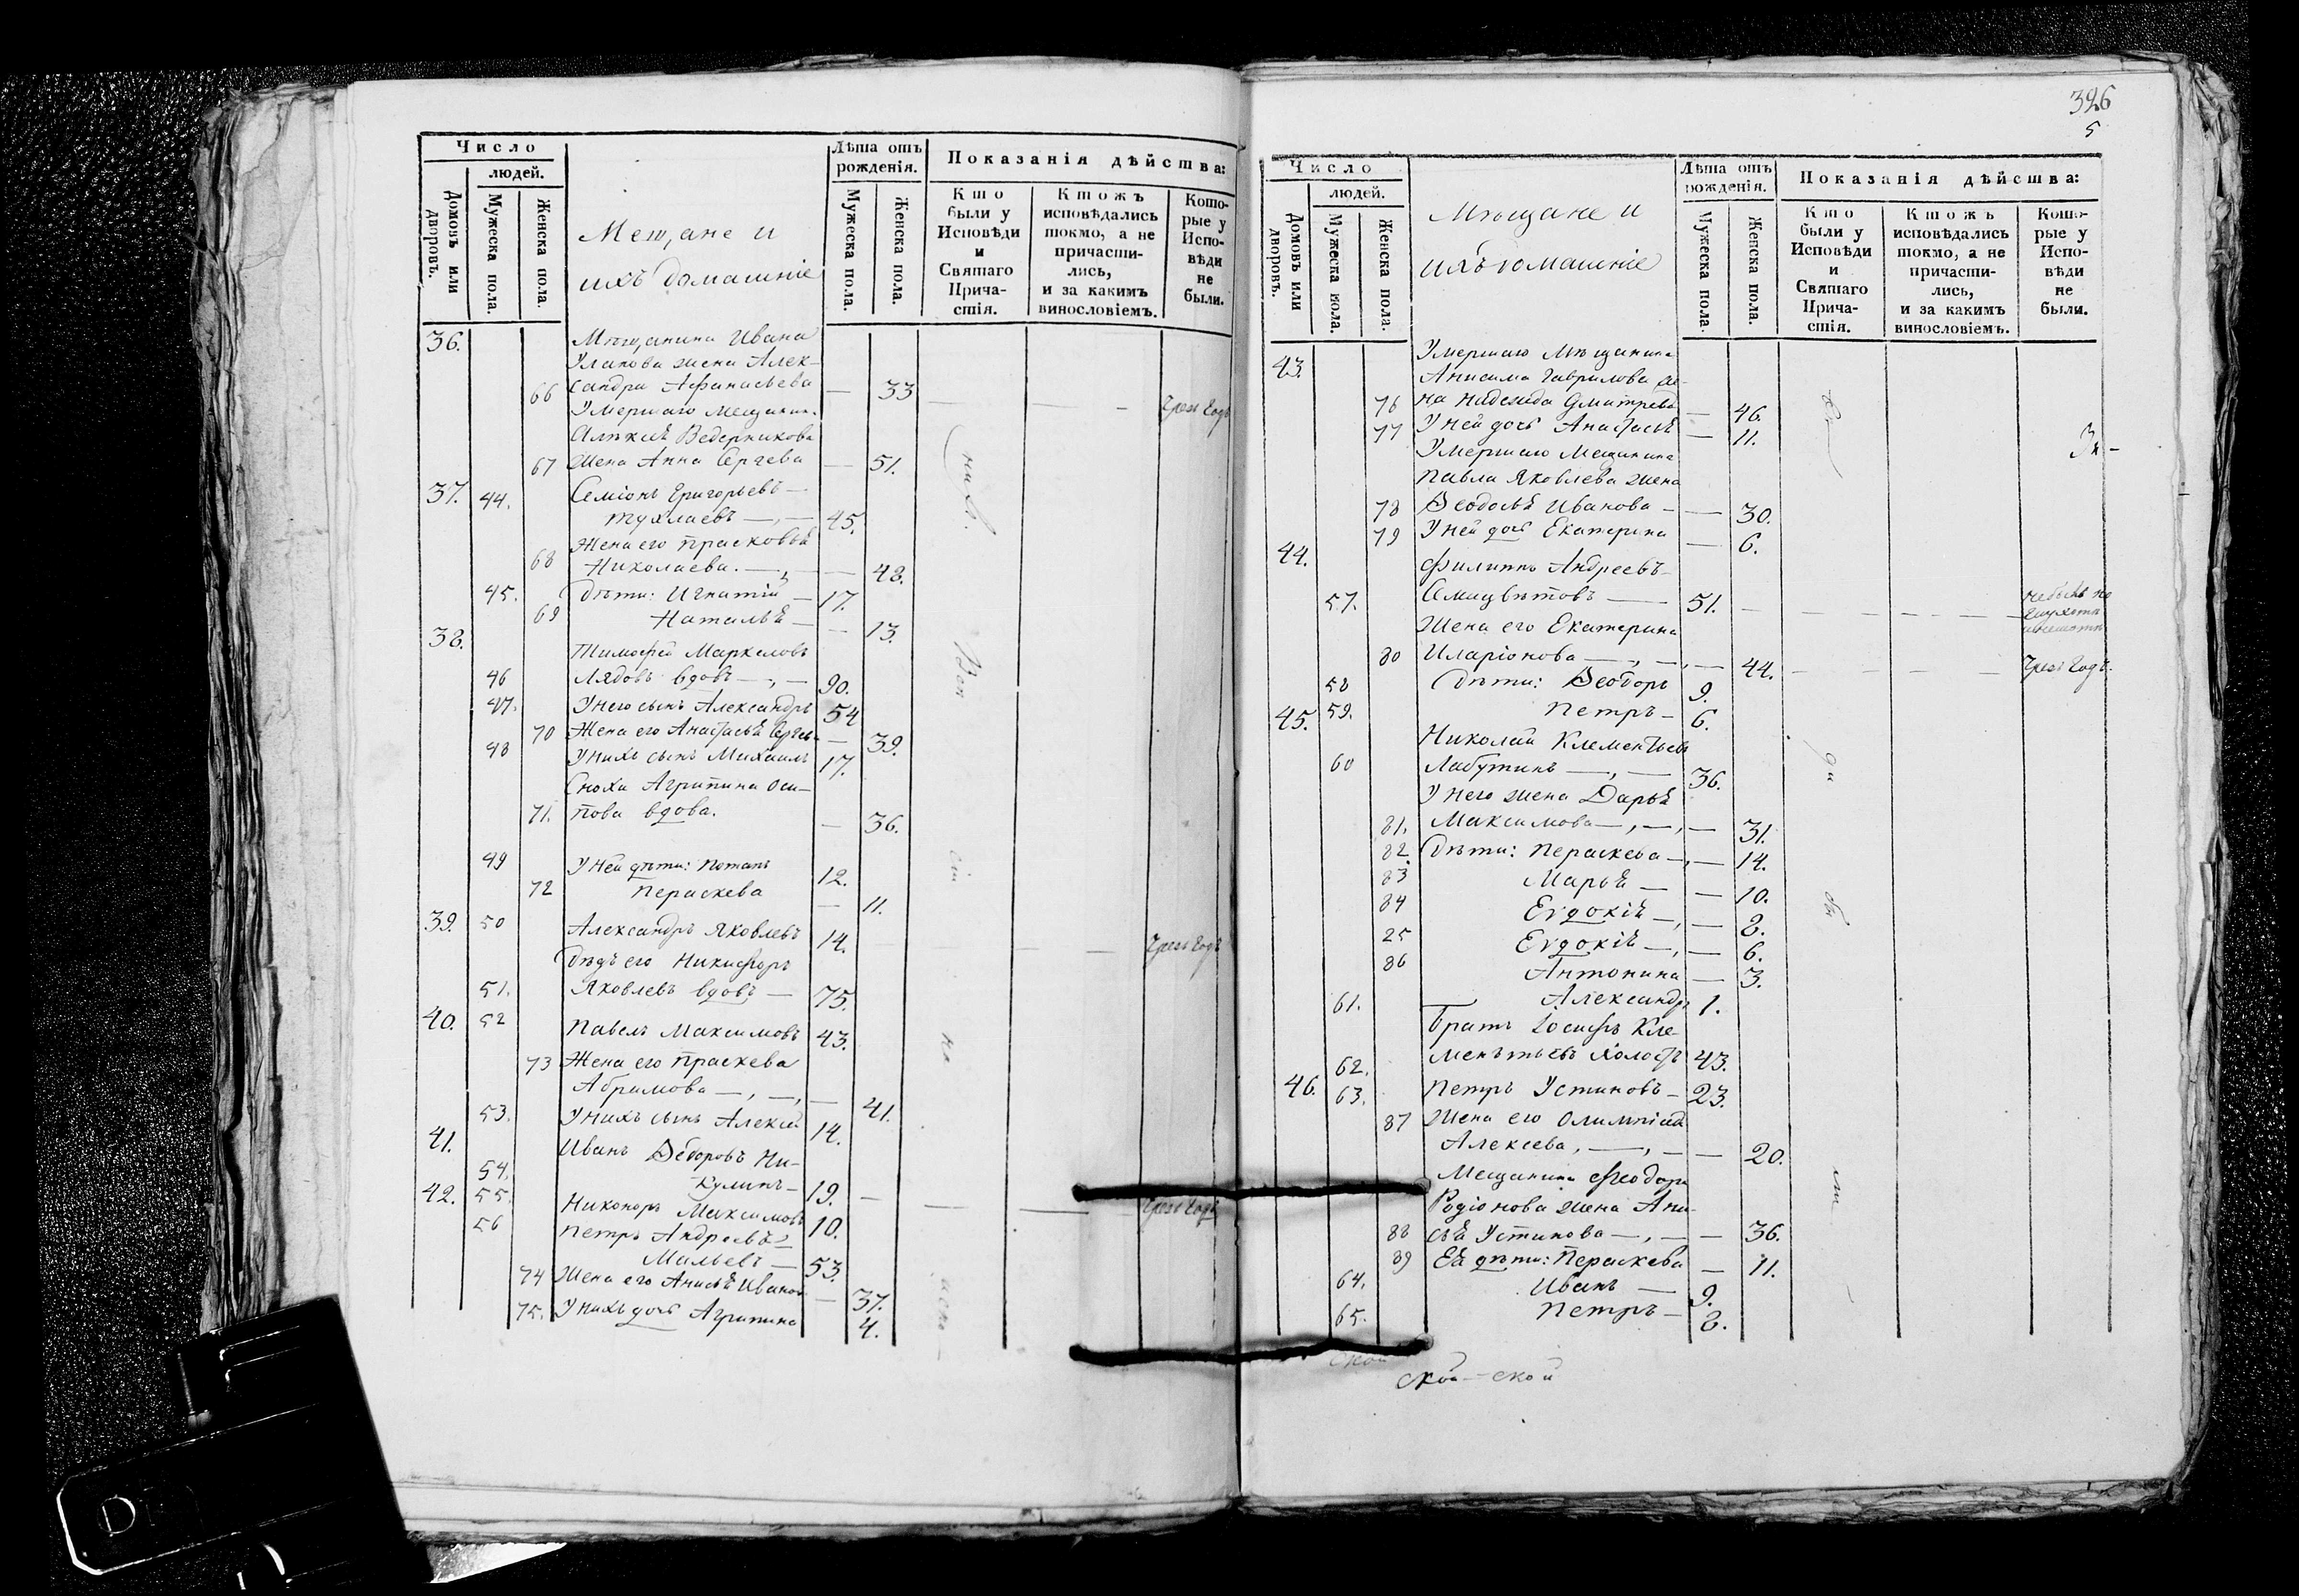 Число
людей.
Домовъ или дворовъ.
Мужеска пола.
Женска пола.
Мещане и
ихъ домашніе
Лѣта отъ
рожденія.
Мужеска пола.
Женска пола.
Показанія дѣйства:
Кто
были у
Исповѣди
и
Святаго
Прича-
стія.
Ктожъ
исповѣдались
токмо, а не
причасти-
лись,
и за какимъ
винословіемъ.
Кото-
рые у
Испо-
вѣди
не
были.
36. Мѣщанина Ивана
Улапова жена Алек-
66 сандра Афанасьева — 33
Умершаго мещанин.
Алѣксѣ Ведерникова
67 Жена Анна Сергева — 51.
37. 44. Семіонъ Григорьевъ —
Тухлаевъ — 45.
Жена его Прасковья
68 Николаева. — 48.
45. Дѣти: Игнатій — 17.
69 Наталья — 13.
38. Тимофей Маркеловъ
46 Лядовъ вдовъ — 90.
47. У него сынъ Александръ 54
70 Жена его Анастасья Сергев. — 39.
48 У нихъ сынъ Михаилъ 17.
Сноха Агрипина Оси-
71. пова вдова. — 36.
49 У ней дѣти: Потапъ 12.
72 Пераскева — 11.
39. 50 Александръ Яковлевъ 14.
Дѣдъ его Никифоръ
51. Яковлевъ вдовъ — 75.
40. 52 Павелъ Максимовъ 43.
73 Жена его Праскева
Абрамова — 41.
53. У нихъ сынъ Алексей 14.
41. Иванъ Ѳедоровъ Ни-
54. кулинъ — 19. —
42. 55. Никоноръ Максимовъ 10.
56 Петръ Андреевъ —
Мальевъ — 53.
74 Жена его Анисья Иванов — 37.
75. У нихъ дочь Агрипина 4.
326
5
Число
людей.
Домовъ или дворовъ.
Мужеска пола.
Женска пола.
Мѣщане и
ихъ домашніе
Лѣта отъ
рожденія.
Мужеска пола.
Женска пола.
Показанія дѣйства:
Кто
были у
Исповѣди
и
Святаго
Прича-
стія.
Ктожъ
исповѣдались
токмо, а не
причасти-
лись,
и за какимъ
винословіемъ.
Кото-
рые у
Испо-
вѣди
не
были.
43. Умершаго Мѣщанина
Анисима Гаврилова же-
76 на Надежда Дмитрева — 46.
77 У ней дочь Анастасья — 11.
Умершаго Мещанина
Павла Яковлева жена
78 Ѳеодосья Иванова — 30.
79 У ней дочь Екатерина — 6.
44. Филиппъ Андреевъ
57. Семицвѣтовъ — 51.
Жена его Екатерина
80 Иларіонова — 44.
58 Дѣти: Ѳеодоръ 9.
59. Петръ — 6.
45. Николай Клементьевъ
60 Лабутинъ — 36.
У него жена Дарья
81. Максимова — 31.
82. Дѣти: Пераскева — 14.
83 Марья — 10.
84 Евдокія — 8.
85 Евдокія — 6.
86 Антонина — 3.
61. Александръ 1.
Братъ Іосифъ Кле-
62. ментьевъ холостъ 43.
46. 63. Петръ Устиновъ — 23.
87 Жена его Олимпіада
Алексева, — 20.
Мещанина Феодора
Родіонова жена Ани-
88 сья Устинова — 36.
89 Ея дѣти: Пераскева — 11.
64. Иванъ — 9.
65. Петръ — 8.
ской
ской—ской